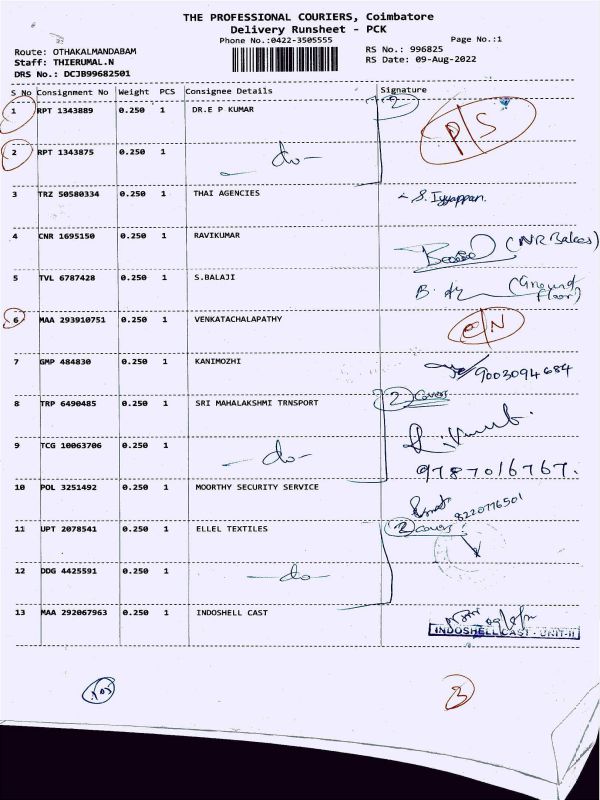 THE PROFESSIONAL COURIERS, Coimbatore
Delivery Runsheet - PCK
Phone No.:0422-3505555
Page No.:1
Route: OTHAKALMANDABAM
RS No.: 996825
Staff: THIERUMAL.N
RS Date: 09-Aug-2022
DRS No.: DCJB99682501
S No Consignment No Weight PCS Consignee Details Signature
1 RPT 1343889 0.250 1 DR.E P KUMAR 2
P/S
2 RPT 1343875 0.250 1 -do-
3 TRZ 50580334 0.250 1 THAI AGENCIES S. Iyyappan.
4 CNR 1695150 0.250 1 RAVIKUMAR
5 TVL 6787428 0.250 1 S.BALAJI B. (Ground Floor)
6 MAA 293910751 0.250 1 VENKATACHALAPATHY
7 GMP 484830 0.250 1 KANIMOZHI 9003094684
8 TRP 6490485 0.250 1 SRI MAHALAKSHMI TRNSPORT 2 Covers
9 TCG 10063706 0.250 1 -do- 9787016767.
10 POL 3251492 0.250 1 MOORTHY SECURITY SERVICE 8220776501
11 UPT 2078541 0.250 1 ELLEL TEXTILES 2 covers
12 DDG 4425591 0.250 1 -do-
13 MAA 292067963 0.250 1 INDOSHELL CAST
INDOSHELL CAST - UNIT-II
3